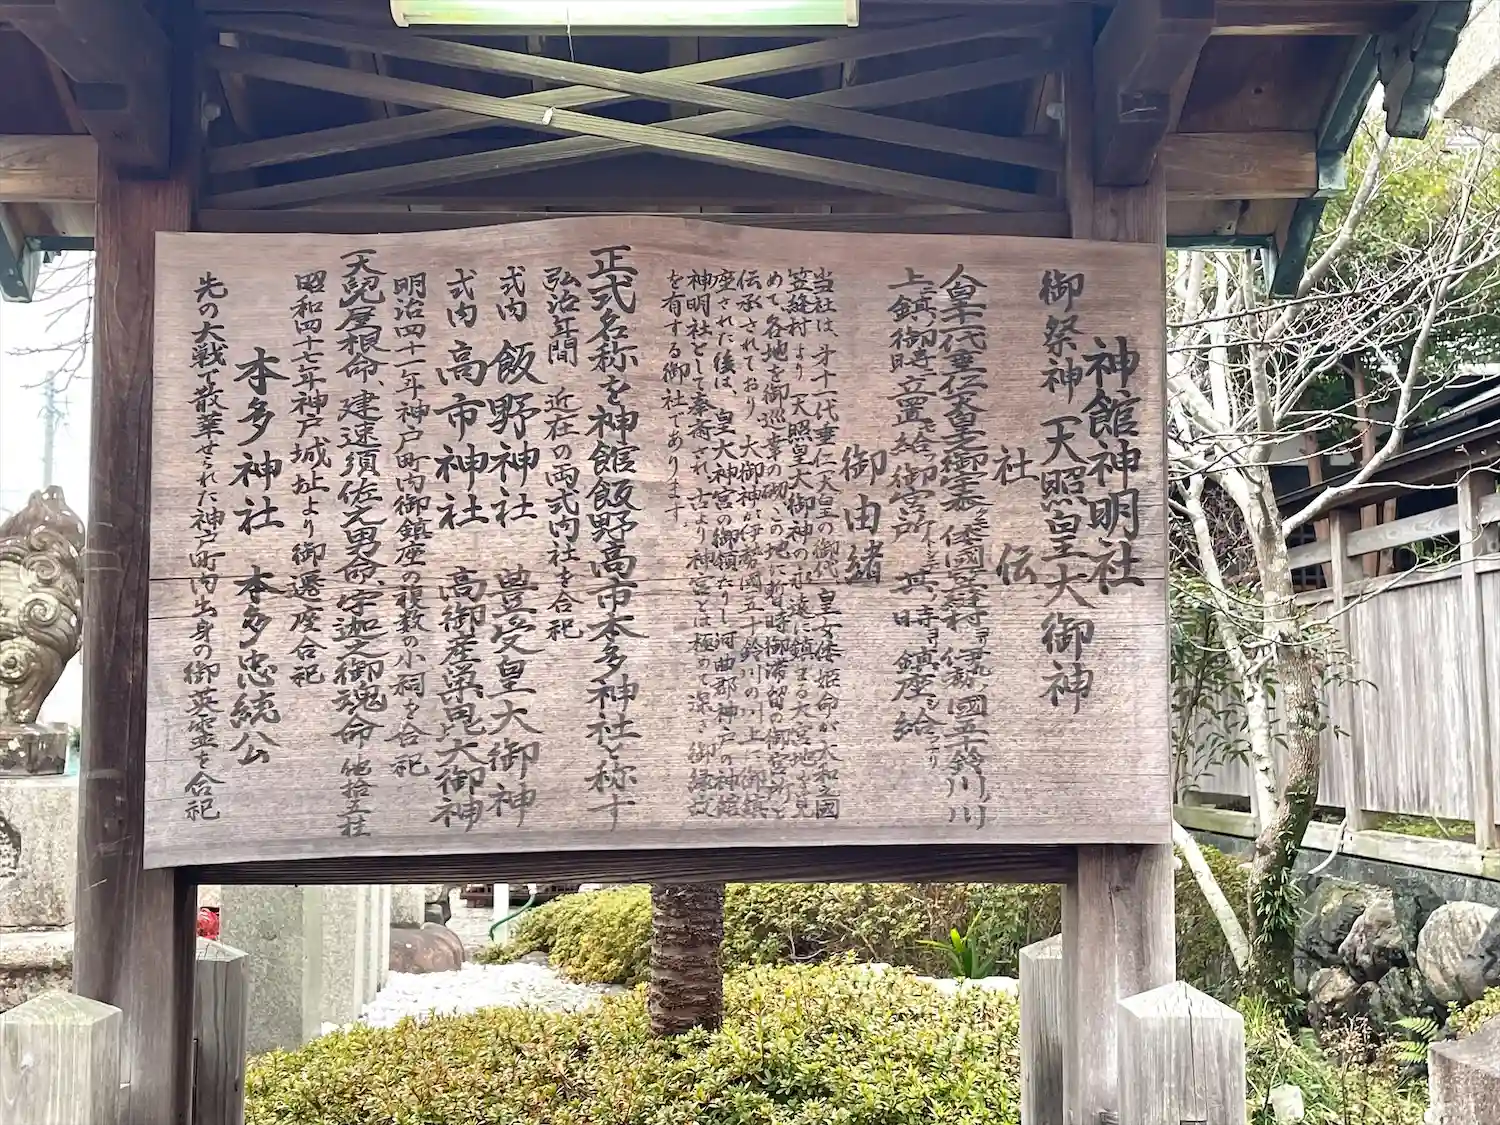 神館神明社
御祭神 天照皇大御神
社 伝
皇十一代垂仁天皇之御宇 倭國 笠縫村ヨリ伊勢ノ國五十鈴ノ川ノ川
上ニ鎮リ御 時ニ立置セ給フ御宮所 其ノ時ヨリ鎮座シ給
御由緒
当社は、才十一代垂仁天皇の御代、皇女倭姫命が大和之國
笠縫村より 天照皇大御神の永遠に鎮まる大宮地を見
めて各地を御巡幸の砌、この地に暫時御滞留の御宮所と
伝承されており、大御神が伊勢國五十鈴川の川上に御鎮
座された後は、皇大神宮の御領たりし河曲郡神戸の神館
神明社として奉斎され、古より神宮とは極めて深き御縁故
を有する御社であります
正式名称を神館飯野高市本多神社と称す
弘治年間 近在の両式内社を合祀
式内 飯野神社 豊受皇大御神
式内 高市神社 高御産巣毘大御神
明治四十一年神戸町内御鎮座の複数の小祠を合祀
天兒屋根命、建速須佐之男命、宇迦之御魂命 他拾五柱
昭和四十七年神戸城址より御遷座合祀
本多神社 本多忠統公
先の大戦で散華せられた神戸町内出身の御英霊を合祀